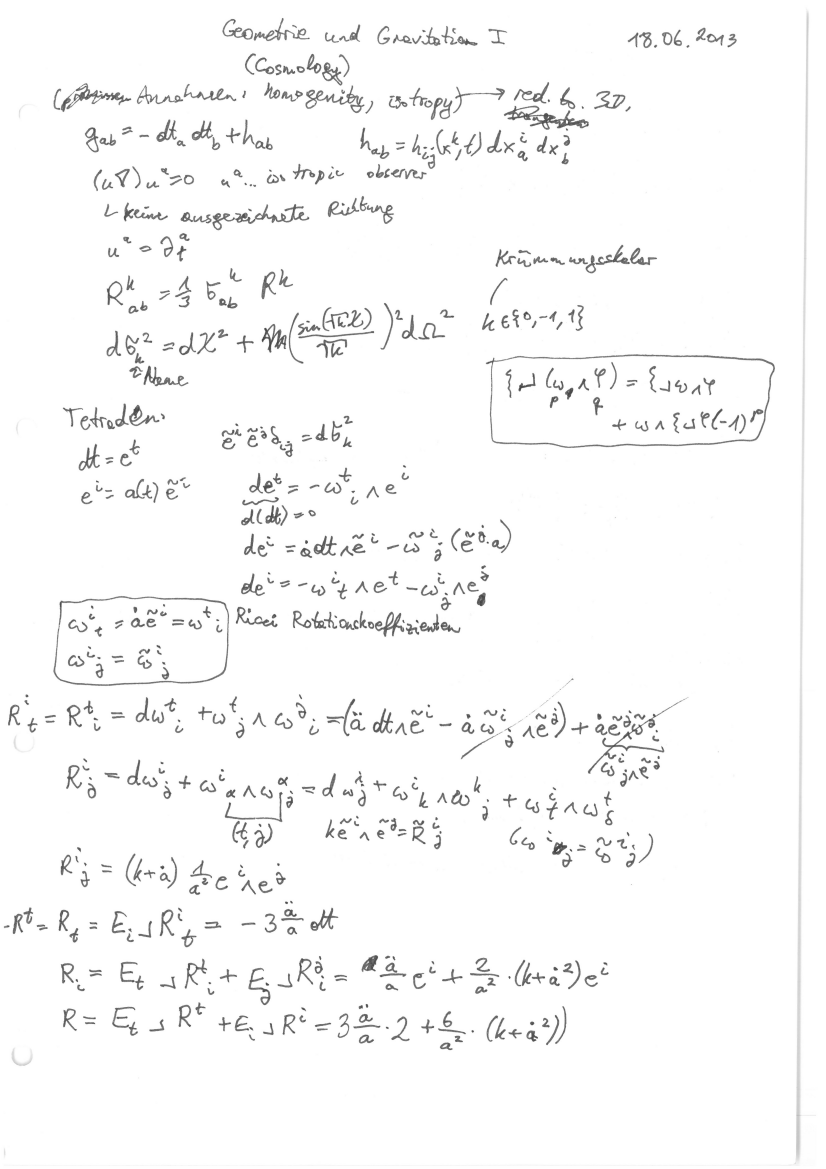 Geometrie und Gravitation I 18.06.2013
(Cosmology)
Annahmen: homogenity, isotropy) → red. to. 3D,
g_ab = -dt_a dt_b + h_ab h_ab = h_ij(x^k,t) dx^i_a dx^j_b
(u∇)u^a=0 u^a... isotropic observer
↳ keine ausgezeichnete Richtung
u^a = ∂_t^a
Krümmungsskalar
R^k_ab = 1/3 σ_ab^k R^k
k ∈ {0,-1,1}
dσ_k^2 = dχ^2 + (sin(√k χ)/√k)^2 dΩ^2
↑ Name
ξ⌟(ω_p ∧ φ_q) = ξ⌟ω∧φ
+ ω∧ξ⌟φ(-1)^p
Tetraden:
dt = e^t ẽ^i ẽ^j δ_ij = dσ_k^2
e^i = a(t) ẽ^i de^t = -ω^t_i ∧ e^i
d(dt)=0
de^i = ȧ dt∧ẽ^i - ω̃^i_j (ẽ^j·a)
de^i = -ω^i_t ∧ e^t - ω^i_j ∧ e^j
ω^i_t = ȧẽ^i = ω^t_i Ricci Rotationskoeffizienten
ω^i_j = ω̃^i_j
R^i_t = R^t_i = dω^t_i + ω^t_j ∧ ω^j_i = (ä dt∧ẽ^i - ȧ ω̃^i_j ∧ẽ^j) + ȧẽ^j ω̃^j_i
ω̃^i_j∧ẽ^j
R^i_j = dω^i_j + ω^i_α ∧ ω^α_j = dω^i_j + ω^i_k ∧ ω^k_j + ω^i_t ∧ ω^t_j
(t,j) kẽ^i ∧ ẽ^j = R̃^i_j (ω^i_j = ω̃^i_j)
R^i_j = (k+ȧ) 1/a^2 e^i∧e^j
-R^t = R_t = E_i⌟R^i_t = -3 ä/a dt
R_i = E_t ⌟ R^t_i + E_j⌟R^j_i = ä/a e^i + 2/a^2 · (k+ȧ^2)e^i
R = E_t ⌟ R^t + E_i ⌟ R^i = 3 ä/a · 2 + 6/a^2 · (k+ȧ^2))